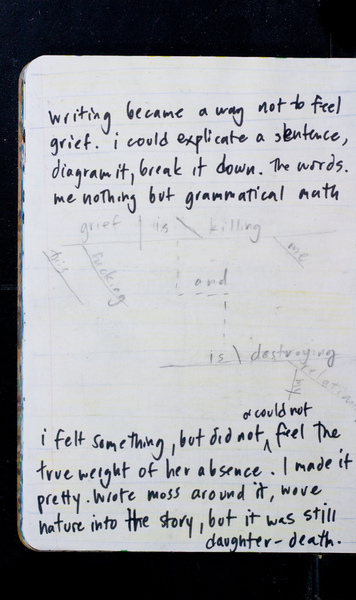 writing became a way not to feel
grief. i could explicate a sentence,
diagram it, break it down. The words.
me nothing but grammatical math
grief | is \ killing
me
this
fucking
and
is \ destroying
my
relation
& could not
i felt something, but did not ^ feel the
true weight of her absence. I made it
pretty. Wrote moss around it, wove
nature into the story, but it was still
daughter-death.